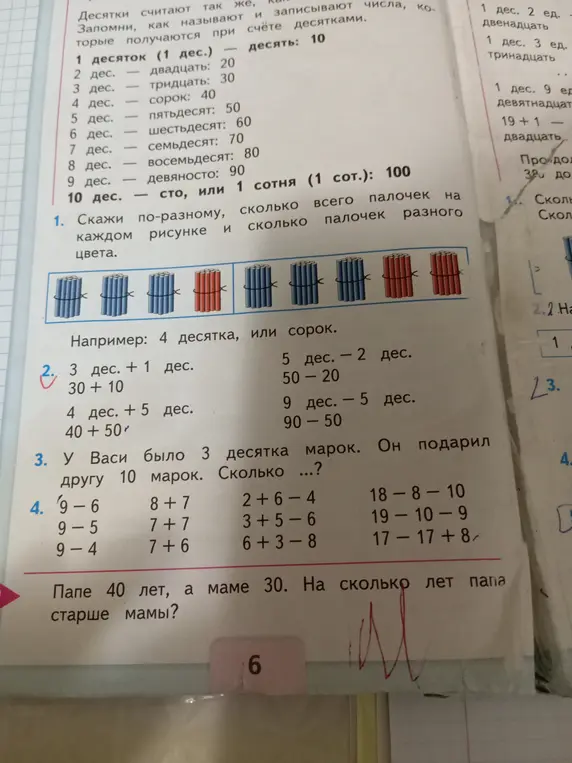 Десятки считают так же,
Запомни, как называют и записывают числа, ко-
торые получаются при счёте десятками.
1 десяток (1 дес.) — десять: 10
2 дес. — двадцать: 20
3 дес. — тридцать: 30
4 дес. — сорок: 40
5 дес. — пятьдесят: 50
6 дес. — шестьдесят: 60
7 дес. — семьдесят: 70
8 дес. — восемьдесят: 80
9 дес. — девяносто: 90
10 дес. — сто, или 1 сотня (1 сот.): 100
1. Скажи по-разному, сколько всего палочек на
каждом рисунке и сколько палочек разного
цвета.
Например: 4 десятка, или сорок.
2. 3 дес. + 1 дес. 5 дес. − 2 дес.
30 + 10 50 − 20
4 дес. + 5 дес. 9 дес. − 5 дес.
40 + 50 90 − 50
3. У Васи было 3 десятка марок. Он подарил
другу 10 марок. Сколько ...?
4. 9 − 6 8 + 7 2 + 6 − 4 18 − 8 − 10
9 − 5 7 + 7 3 + 5 − 6 19 − 10 − 9
9 − 4 7 + 6 6 + 3 − 8 17 − 17 + 8
Папе 40 лет, а маме 30. На сколько лет папа
старше мамы?
6
1 дес. 2 ед.
двенадцать
1 дес. 3 ед.
тринадцать
. .
1 дес. 9 ед
девятнадцат
19 + 1 —
двадцать
до
1. Скол
Скол
2. На
1
3.
4.